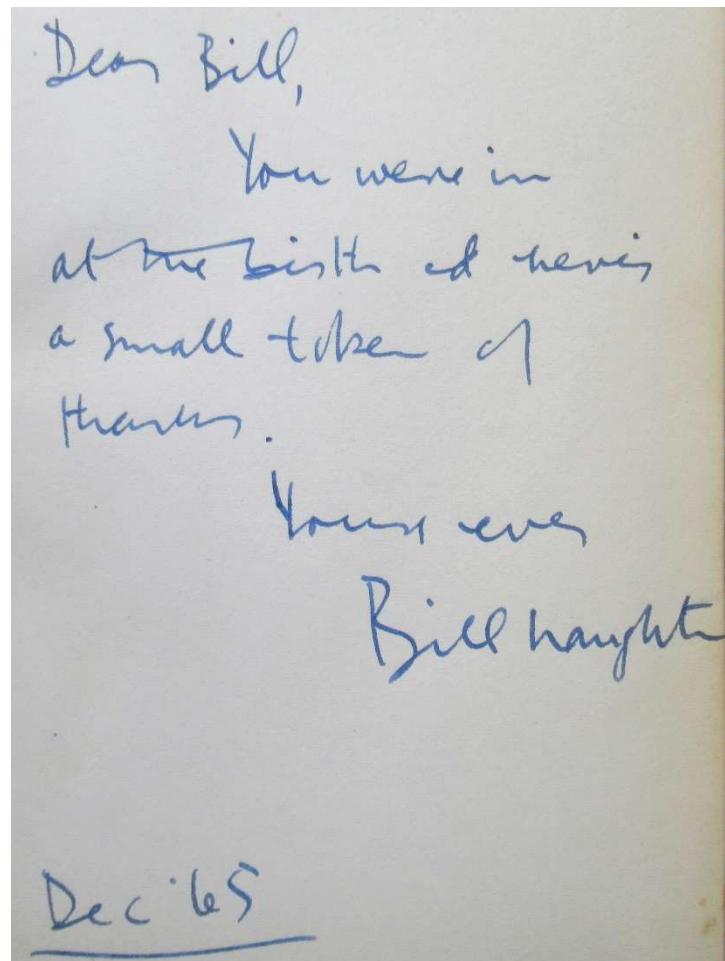 Dear Bill,
You were in
at the birth and here is
a small token of
thanks.
Yours ever
Bill Naughton
Dec '65